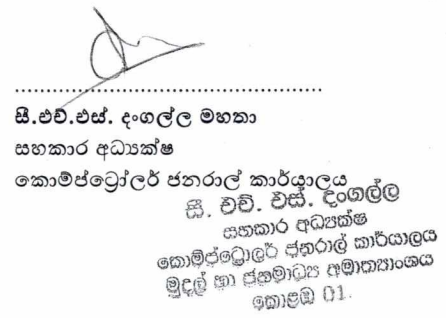 සී.එච්.එස්. දංගල්ල මහතා
සහකාර අධ්‍යක්ෂ
කොම්ප්ට්‍රෝලර් ජනරාල් කාර්යාලය
සී. එච්. එස්. දංගල්ල
සහකාර අධ්‍යක්ෂ
කොම්ප්ට්‍රොලර් ජනරාල් කාර්යාලය
මුදල් හා ජනමාධ්‍ය අමාත්‍යාංශය
කොළඹ 01.